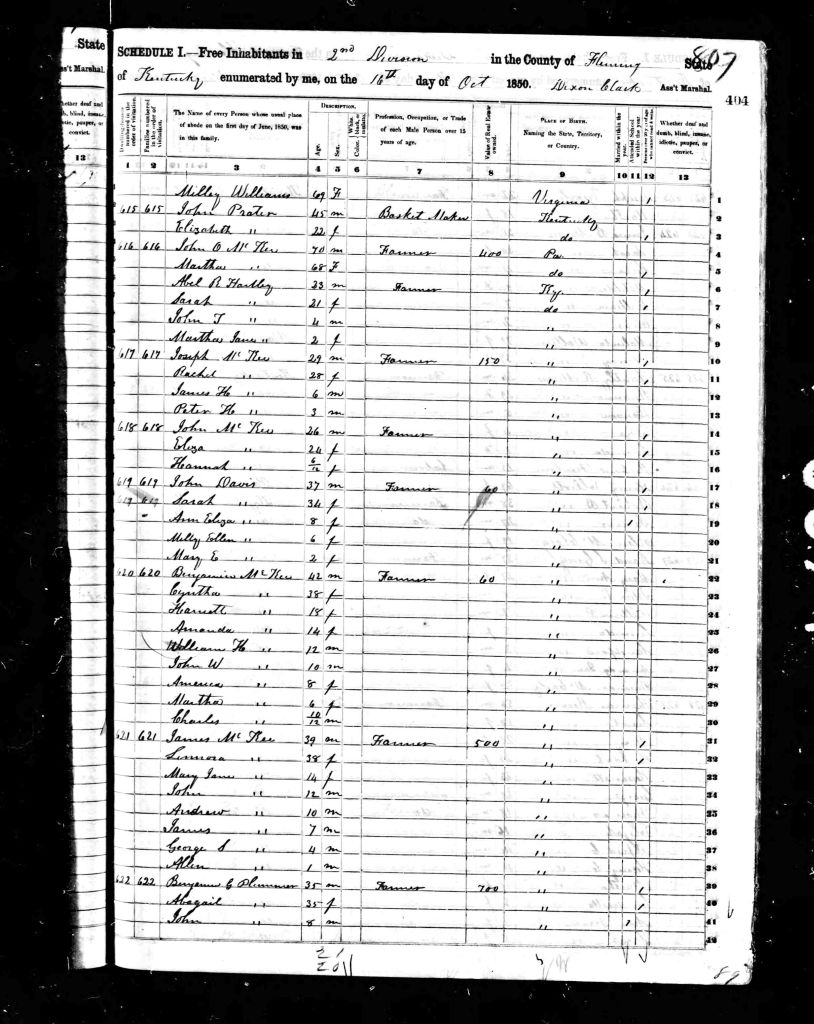 State
Ass't Marshal.
whether deaf and
dumb, blind, insane,
idiotic, pauper, or
convict.
13
SCHEDULE I.—Free Inhabitants in 2nd Division in the County of Fleming State
807
of Kentucky enumerated by me, on the 16th day of Oct 1850. Dixon Clark Ass't Marshal.
404
Dwelling-houses numbered in the order of visitation.
Families numbered in the order of visitation.
The Name of every Person whose usual place of abode on the first day of June, 1850, was in this family.
DESCRIPTION.
Age.
Sex.
Color, White, black, or mulatto.
Profession, Occupation, or Trade of each Male Person over 15 years of age.
Value of Real Estate owned.
PLACE OF BIRTH. Naming the State, Territory, or Country.
Married within the year.
Attended School within the year.
Persons over 20 y'rs of age who cannot read & write.
Whether deaf and dumb, blind, insane, idiotic, pauper, or convict.
1 2 3 4 5 6 7 8 9 10 11 12 13
Milley Williams 69 F Virginia / 1
615 615 John Prater 45 m Basket Maker Kentucky 2
Elizabeth " 22 f do / 3
616 616 John O McKee 70 m Farmer 400 Pa. 4
Martha " 68 F do / 5
Abel R Hartley 23 m Farmer Ky. / 6
Sarah " 21 f do / 7
John T " 4 m " 8
Martha Jane " 2 f " 9
617 617 Joseph McKee 29 m Farmer 150 " / 10
Rachel " 28 f " / 11
James H " 6 m " 12
Peter H " 3 m " 13
618 618 John McKee 26 m Farmer " / 14
Eliza " 24 f " / 15
Hannah " 6/12 f " 16
619 619 John Davis 37 m Farmer 60 " / 17
619 619 Sarah " 34 f " / 18
Ann Eliza " 8 f " / 19
Milly Ellen " 6 f " 20
Mary E " 2 f " 21
620 620 Benjamin McKee 42 m Farmer 60 " 22
Cyntha " 38 f " 23
Harriett " 18 f " 24
Amanda " 14 f " 25
William H " 12 m " 26
John W " 10 m " 27
America " 8 f " 28
Martha " 6 f " 29
Charles " 10/12 m " 30
621 621 James McKee 39 m Farmer 500 " / 31
Linnora " 38 f " / 32
Mary Jane " 14 f " 33
John " 12 m " 34
Andrew " 10 m " 35
James " 7 m " 36
George S " 4 m " 37
Allen " 1 m " 38
622 622 Benjamin C Plummer 35 m Farmer 700 " / 39
Abagail " 35 f " / 40
John " 8 m " / 41
42